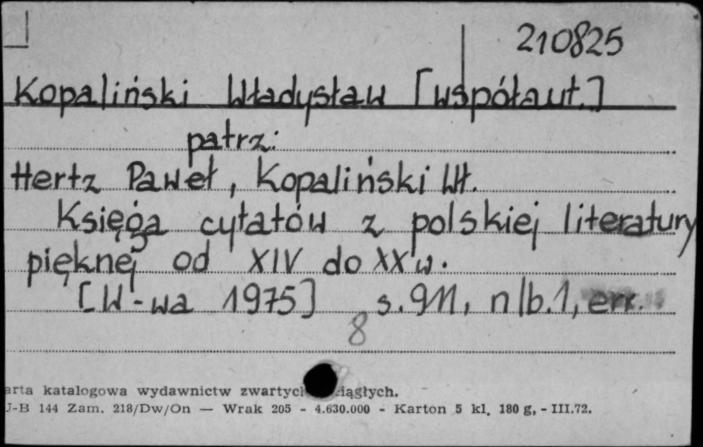 210825
Kopaliński Władysław [współaut.]
patrz:
Hertz Paweł, Kopaliński Wł.
Księga cytatów z polskiej literatury
pięknej od XIV do XX w.
[W-wa 1975] s. 911, nlb. 1, err.
8
arta katalogowa wydawnictw zwartyc iągłych.
J-B 144 Zam. 218/Dw/On — Wrak 205 - 4.630.000 - Karton 5 kl. 180 g, - III.72.